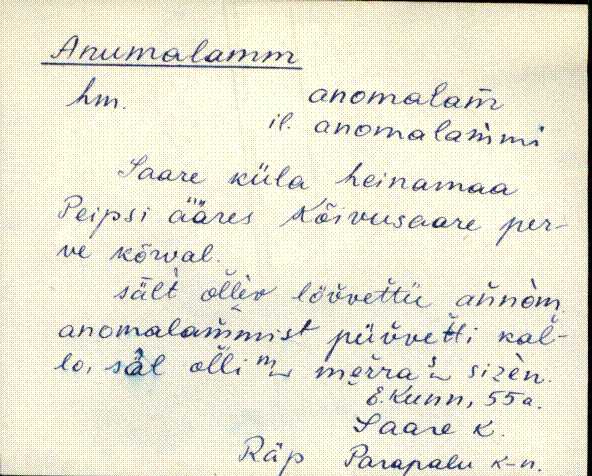 Anumalamm
hm. anomalam̄
il. anomalam̀mi
Saare küla heinamaa
Peipsi ääres Kõivusaare per-
ve kõrval.
sält ol̆lev löv̆vet̆tü an̆nòm
anomalam̆mist püv̆vet̆ti kal̆-
lo, säl ol̆li mer̆ra sizèn.
E. Kunn, 55 a.
Saare k.
Räp Parapalu k-n.